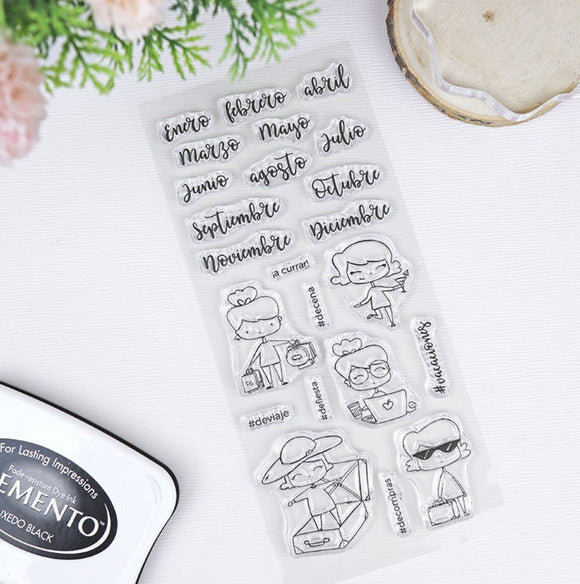 Enero
febrero
abril
Marzo
Mayo
Julio
Junio
agosto
Octubre
Septiembre
Diciembre
Noviembre
¡a currar!
#decena
#vacaciones
#defiesta
#deviaje
#decompras
For Lasting Impressions
Fade-resistant Dye Ink
EMENTO
UXEDO BLACK